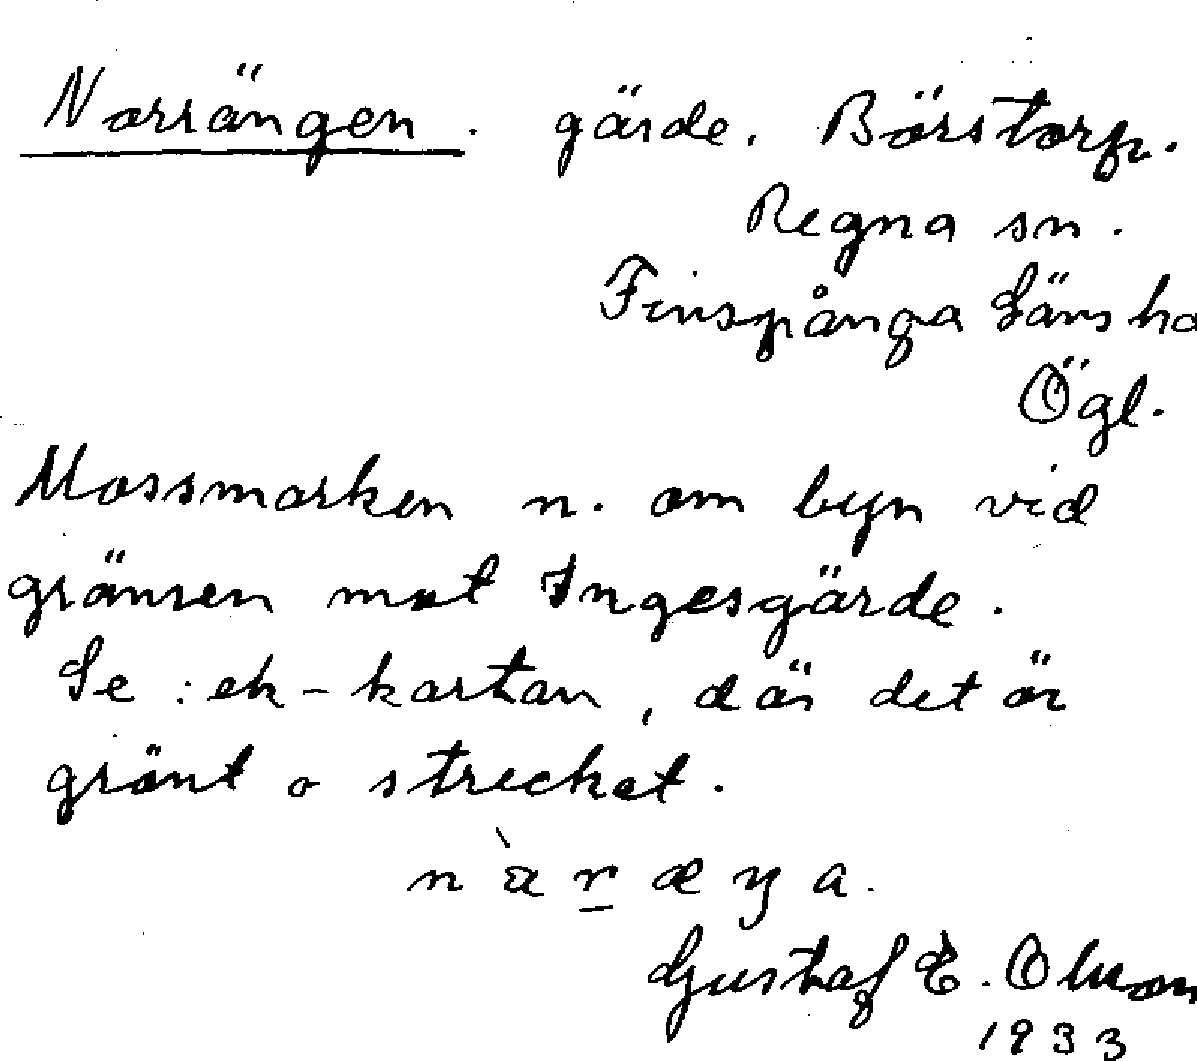 Norrängen. gärde. Börstorp.
Regna sn.
Finspånga Läns ha
Ögl.
Mossmarken n. om byn vid
gränsen mot Ingesgärde.
Se: ek-kartan, där det är
grönt o strecket.
Gustaf E. Olsson
1933